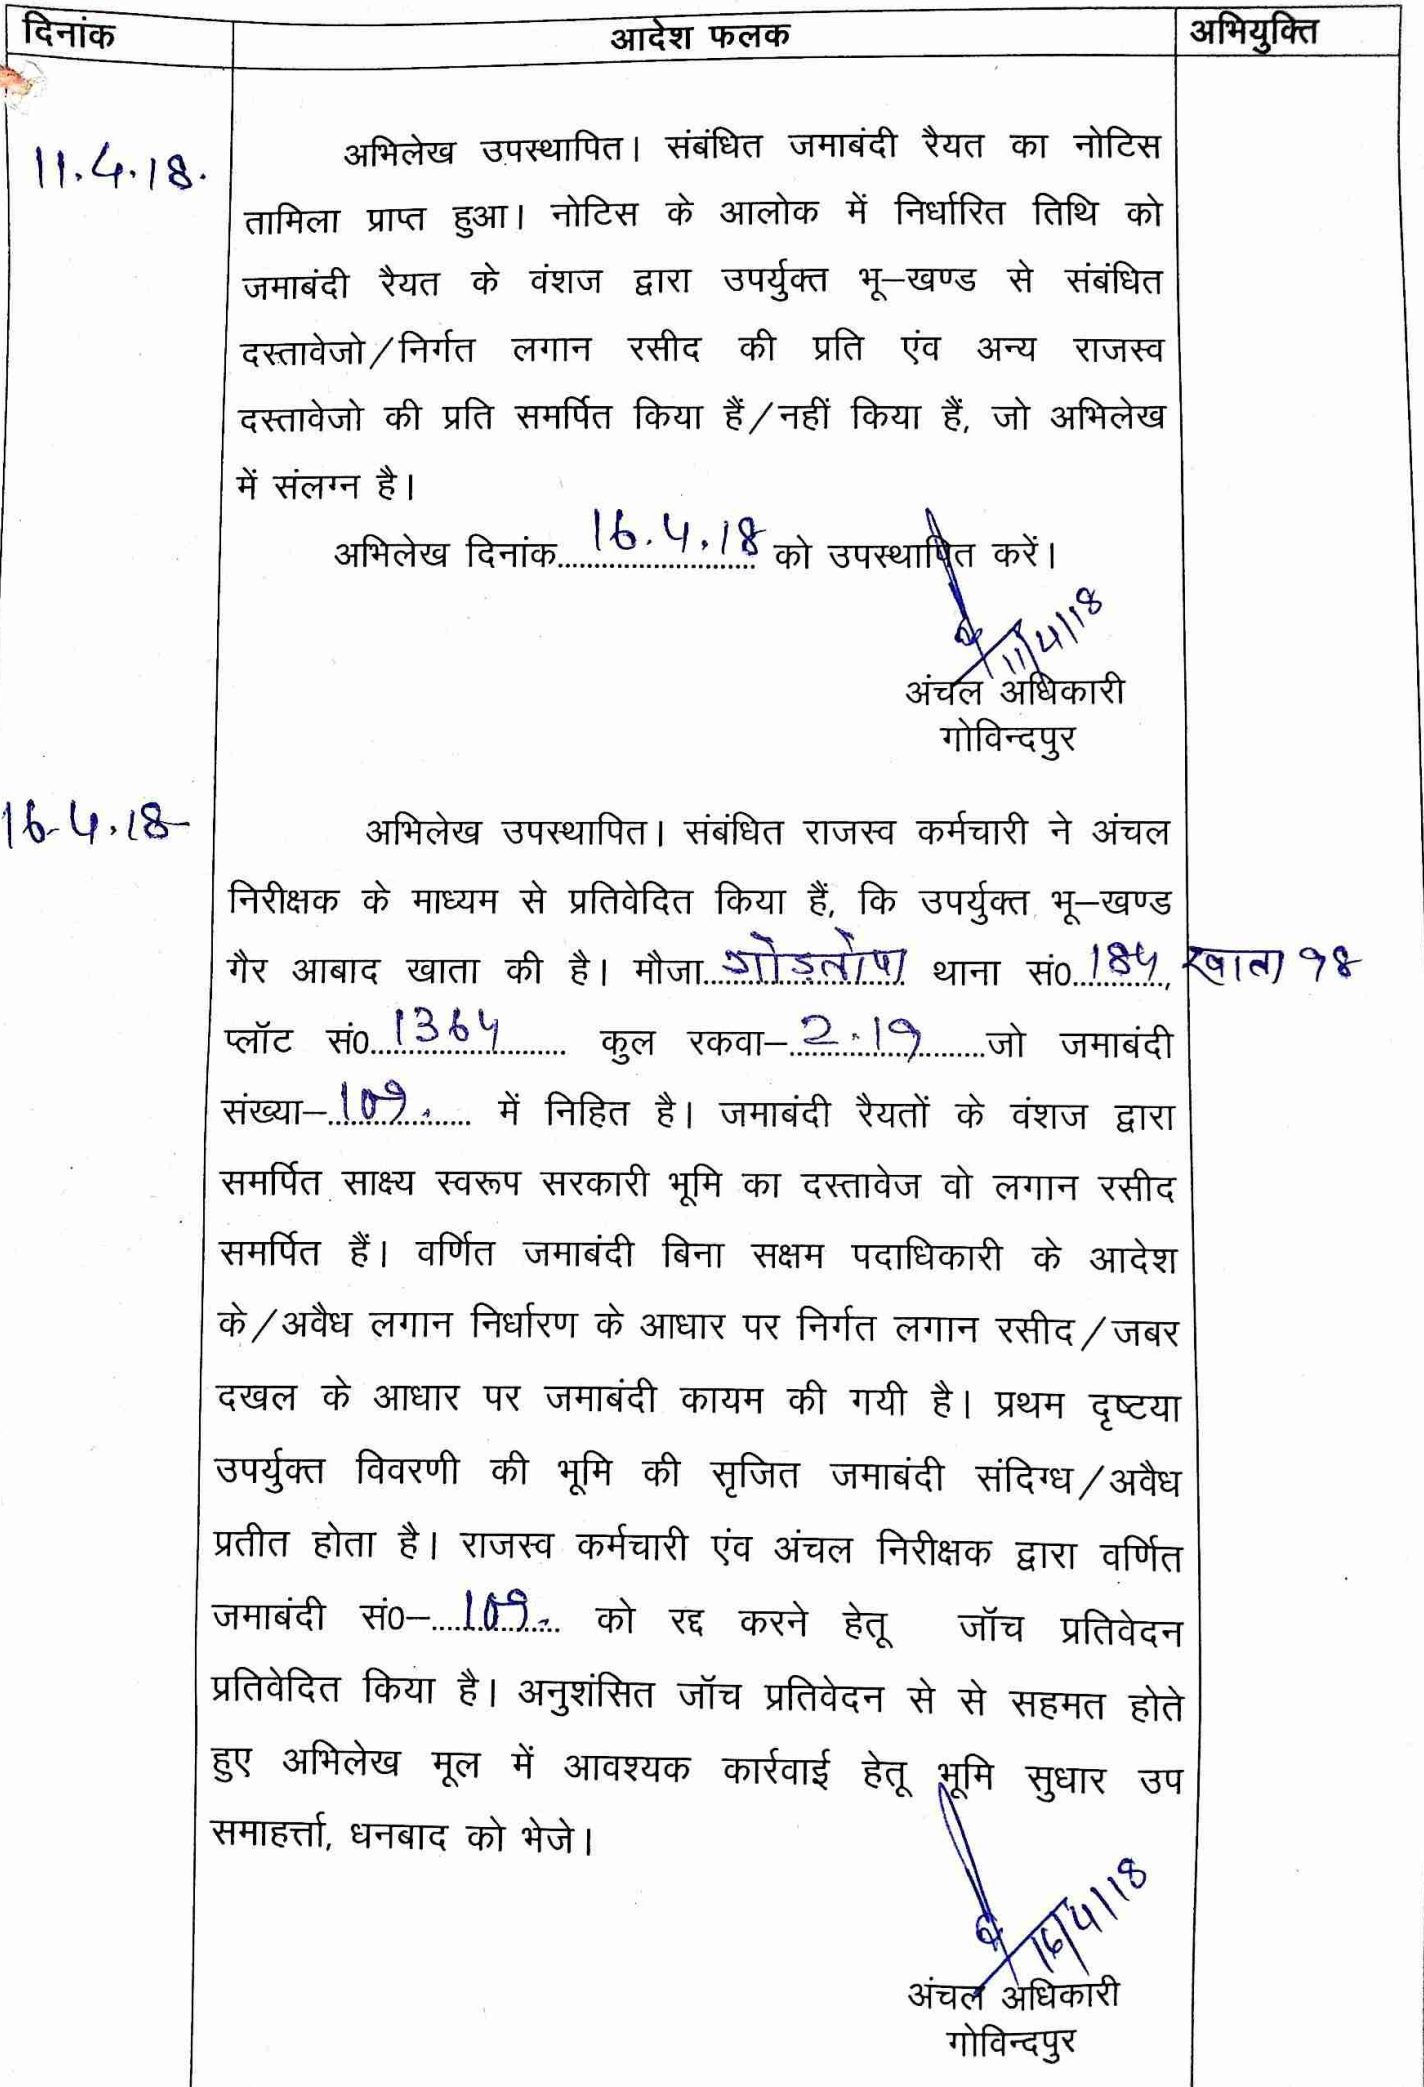 दिनांक आदेश फलक अभियुक्ति
11.4.18. अभिलेख उपस्थापित। संबंधित जमाबंदी रैयत का नोटिस
तामिला प्राप्त हुआ। नोटिस के आलोक में निर्धारित तिथि को
जमाबंदी रैयत के वंशज द्वारा उपर्युक्त भू–खण्ड से संबंधित
दस्तावेजो/निर्गत लगान रसीद की प्रति एंव अन्य राजस्व
दस्तावेजो की प्रति समर्पित किया हैं/नहीं किया हैं, जो अभिलेख
में संलग्न है।
अभिलेख दिनांक 16.4.18 को उपस्थापित करें।
11/4/18
अंचल अधिकारी
गोविन्दपुर
16-4.18 अभिलेख उपस्थापित। संबंधित राजस्व कर्मचारी ने अंचल
निरीक्षक के माध्यम से प्रतिवेदित किया हैं, कि उपर्युक्त भू–खण्ड
गैर आबाद खाता की है। मौजा गोड़तोपा थाना सं० 184, खाता 98
प्लॉट सं० 1364 कुल रकवा– 2.19 जो जमाबंदी
संख्या– 109. में निहित है। जमाबंदी रैयतों के वंशज द्वारा
समर्पित साक्ष्य स्वरूप सरकारी भूमि का दस्तावेज वो लगान रसीद
समर्पित हैं। वर्णित जमाबंदी बिना सक्षम पदाधिकारी के आदेश
के/अवैध लगान निर्धारण के आधार पर निर्गत लगान रसीद/जबर
दखल के आधार पर जमाबंदी कायम की गयी है। प्रथम दृष्टया
उपर्युक्त विवरणी की भूमि की सृजित जमाबंदी संदिग्ध/अवैध
प्रतीत होता है। राजस्व कर्मचारी एंव अंचल निरीक्षक द्वारा वर्णित
जमाबंदी सं०– 109. को रद्द करने हेतू जॉच प्रतिवेदन
प्रतिवेदित किया है। अनुशंसित जॉच प्रतिवेदन से से सहमत होते
हुए अभिलेख मूल में आवश्यक कार्रवाई हेतू भूमि सुधार उप
समाहर्त्ता, धनबाद को भेजे।
16/4/18
अंचल अधिकारी
गोविन्दपुर